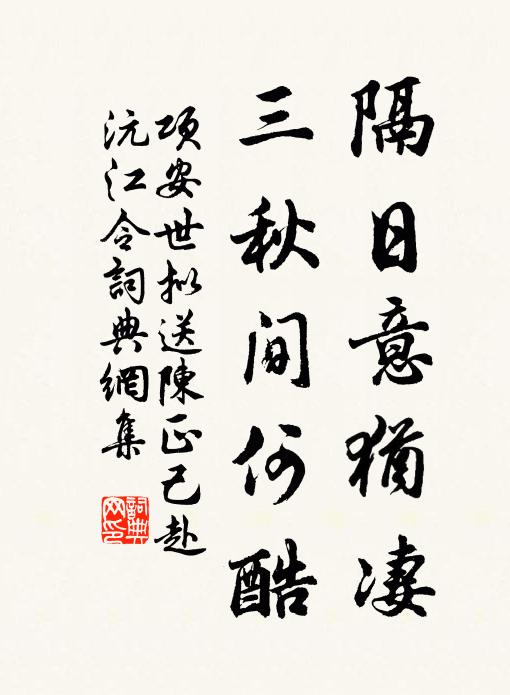 隔日意猶凄
三秋間何酷
項安世拟送陳正己赴
沅江令詞典網集
詞典
网印